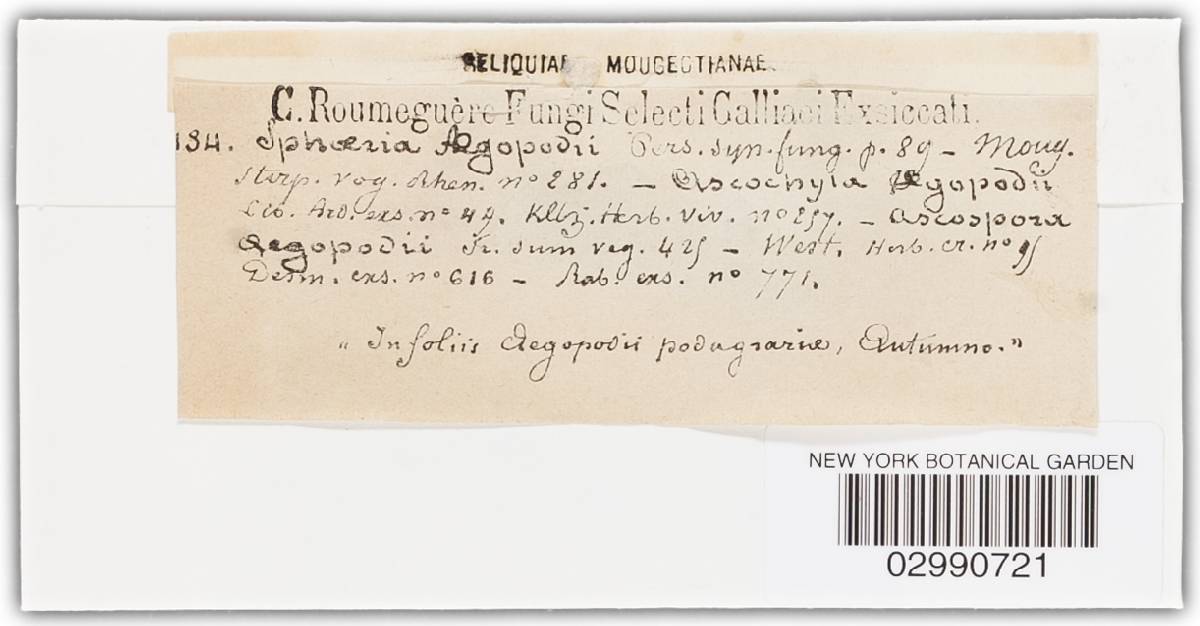 RELIQUIAE MOUGEOTIANAE
C. Roumeguère Fungi Selecti Galliaei Exsiccati.
134. Sphæria Ægopodii Pers. syn. fung. p. 89 - Moug.
Stirp. vog. Rhen. nº 281. - Ascochyta Ægopodii
Lib. Ard. exs. nº 49. Kltz. Herb. viv. nº 257. - Ascospora
Aegopodii Fr. sum veg. 425 - West. Herb. cr. nº 95
Desm. exs. nº 616 - Rab. exs. nº 771.
" In foliis Aegopodii podagrariæ, Autumno. "
NEW YORK BOTANICAL GARDEN
02990721